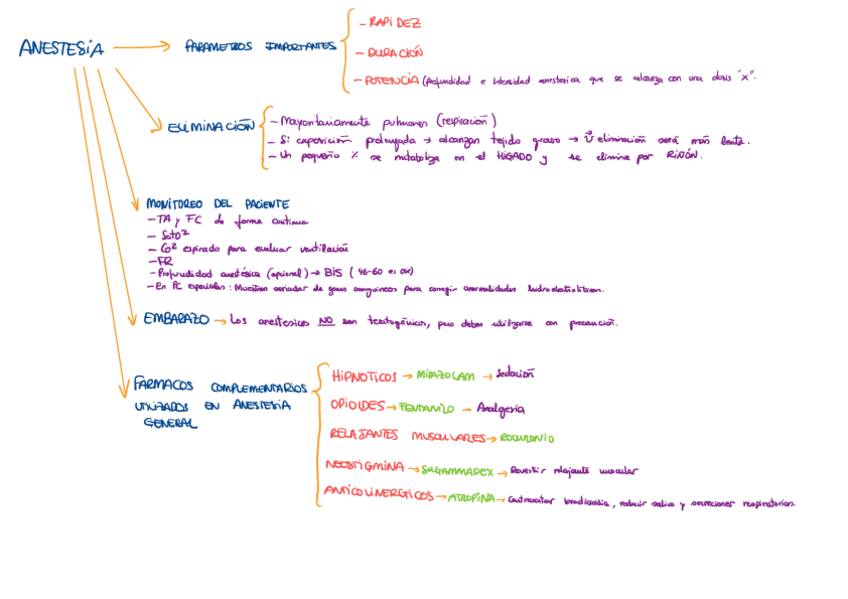 ANESTESIA → PARAMETROS IMPORTANTES
- RAPIDEZ
- DURACIÓN
- POTENCIA (profundidad e intensidad anestesica que se alcanza con una dosis "x".
ELIMINACIÓN
- Mayoritariamente pulmones (respiración)
- Si exposición prolongada → alcanzan tejido graso → eliminación será más lenta.
- Un pequeño % se metaboliza en el HÍGADO y se elimina por RIÑÓN.
MONITOREO DEL PACIENTE
- TA y FC de forma continua
- SatO²
- CO² espirado para evaluar ventilación
- FR
- Profundidad anestésica (opcional) → BIS (46-60 es ok)
- En PC especiales: Muestras seriadas de gases sanguíneos para corregir anormalidades hidroelectrolíticas.
EMBARAZO → Los anestesicos NO son teratogénicos, pero deben utilizarse con precaución.
FARMACOS COMPLEMENTARIOS
UTILIZADOS EN ANESTESIA
GENERAL
HIPNOTICOS → MIDAZOLAM → Sedación
OPIOIDES → FENTANILO - Analgesia
RELAJANTES MUSCULARES → ROCURONIO
NEOSTIGMINA → SUGAMMADEX → Revertir relajante muscular
ANTICOLINERGICOS → ATROPINA → Contrarrestar bradicardia, reducir saliva y secreciones respiratorias.